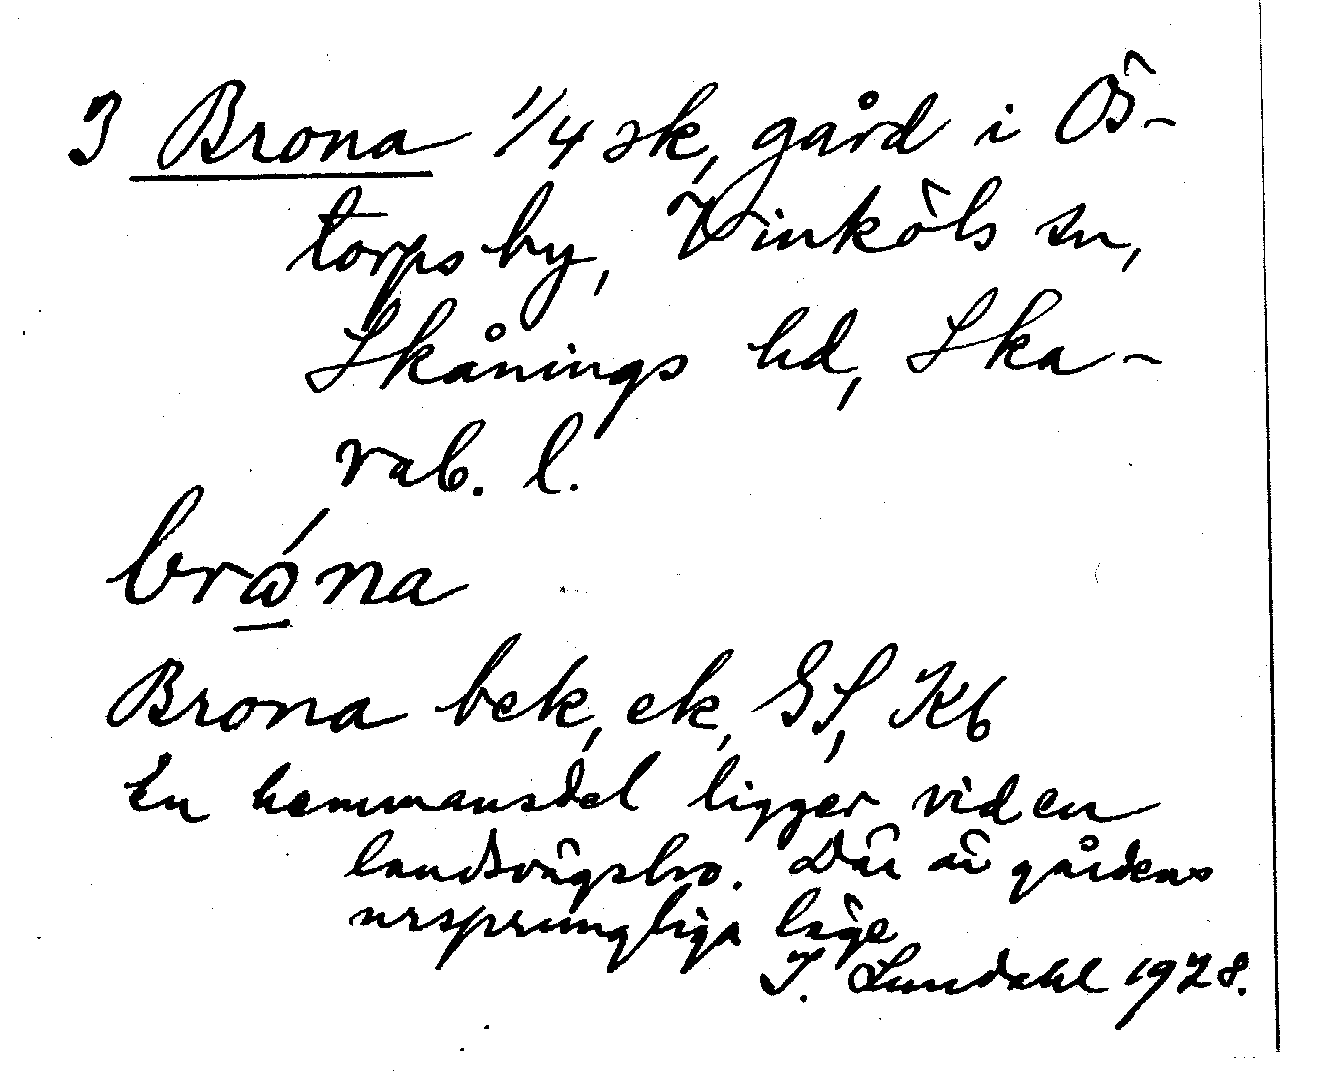 3 Brona 1/4 sk, gård i Ös-
torps by, Vinköls sn,
Skånings hd, Ska-
rab. l.
brώ̲na
Brona bek, ek, GS, Kb
En hemmansdel ligger vid en
landsvägsbro. Där är gårdens
ursprungliga läge
I. Lundahl 1928.